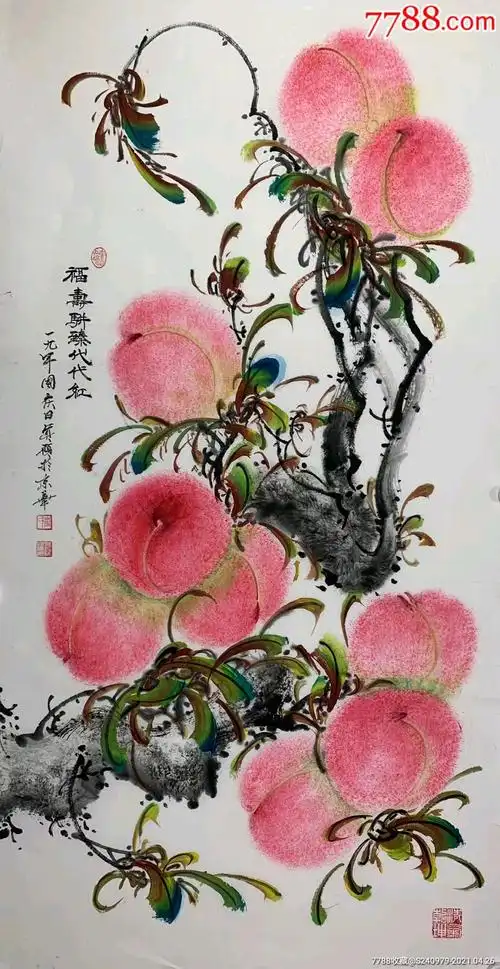 7788.com
福壽駢臻代代紅
一九年國庆日於京華
7788收藏@S240979·2021.04.26